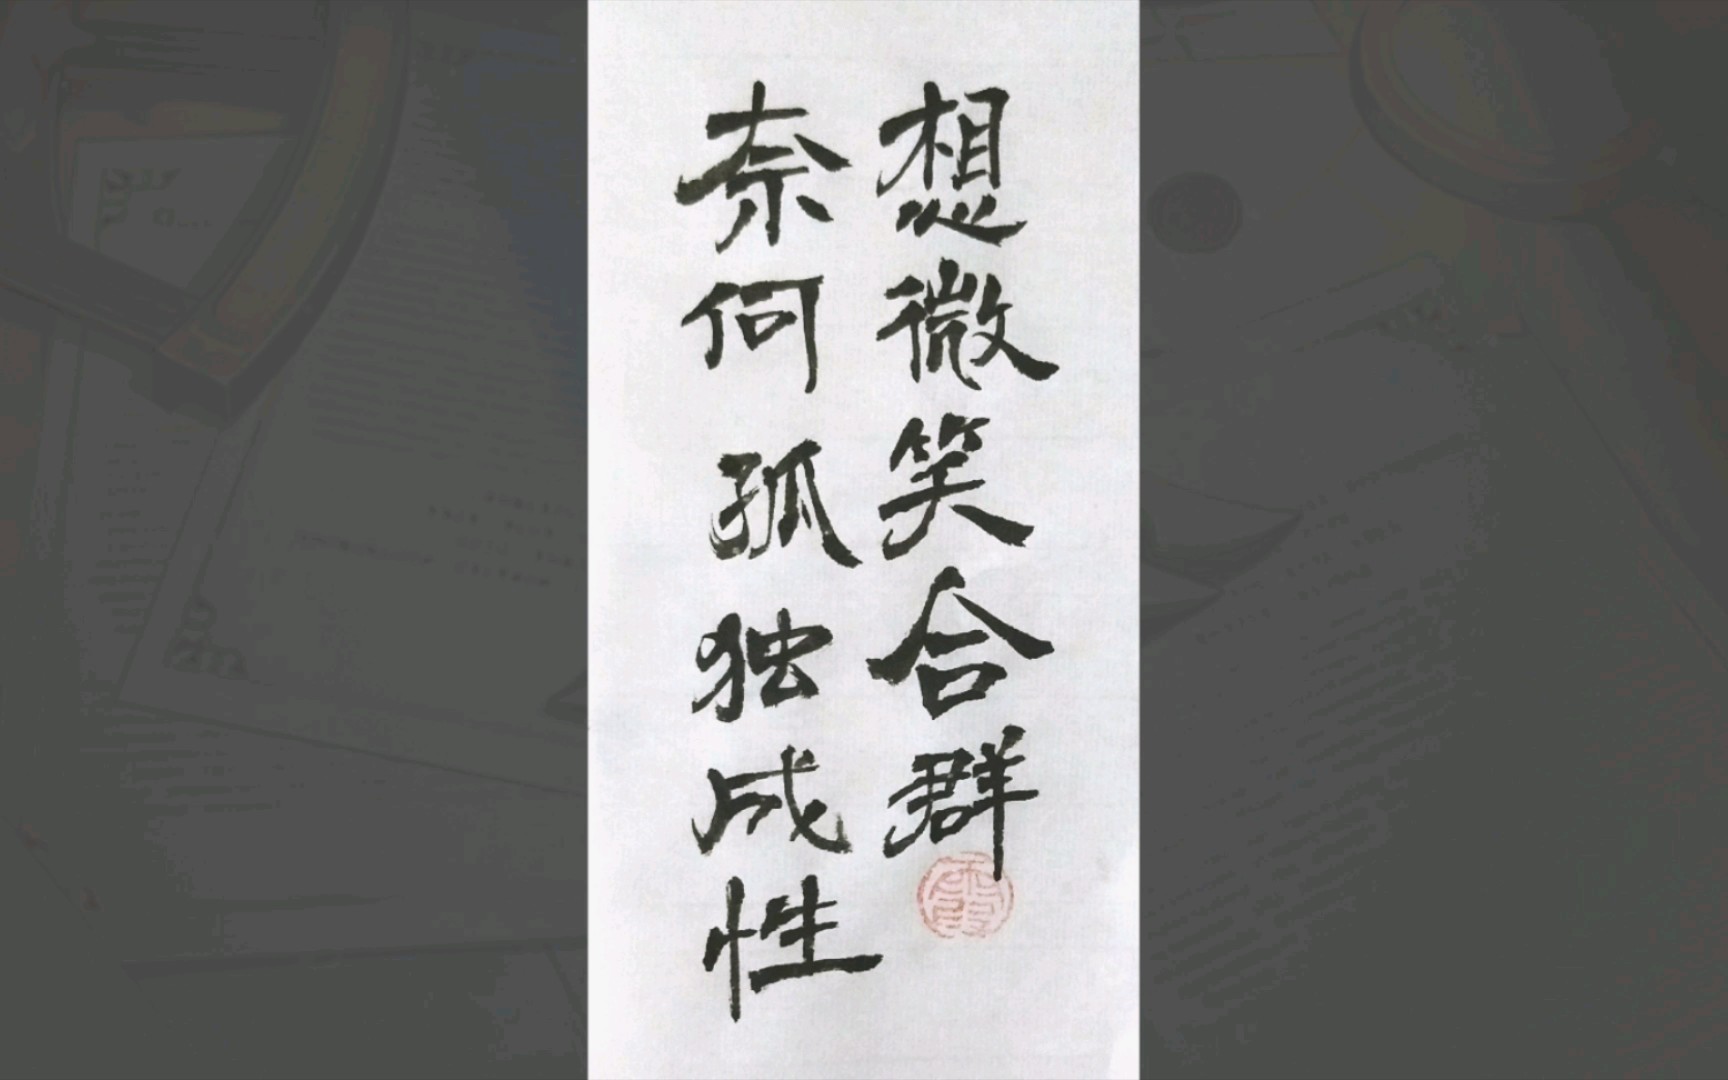 想微笑合群
奈何孤独成性